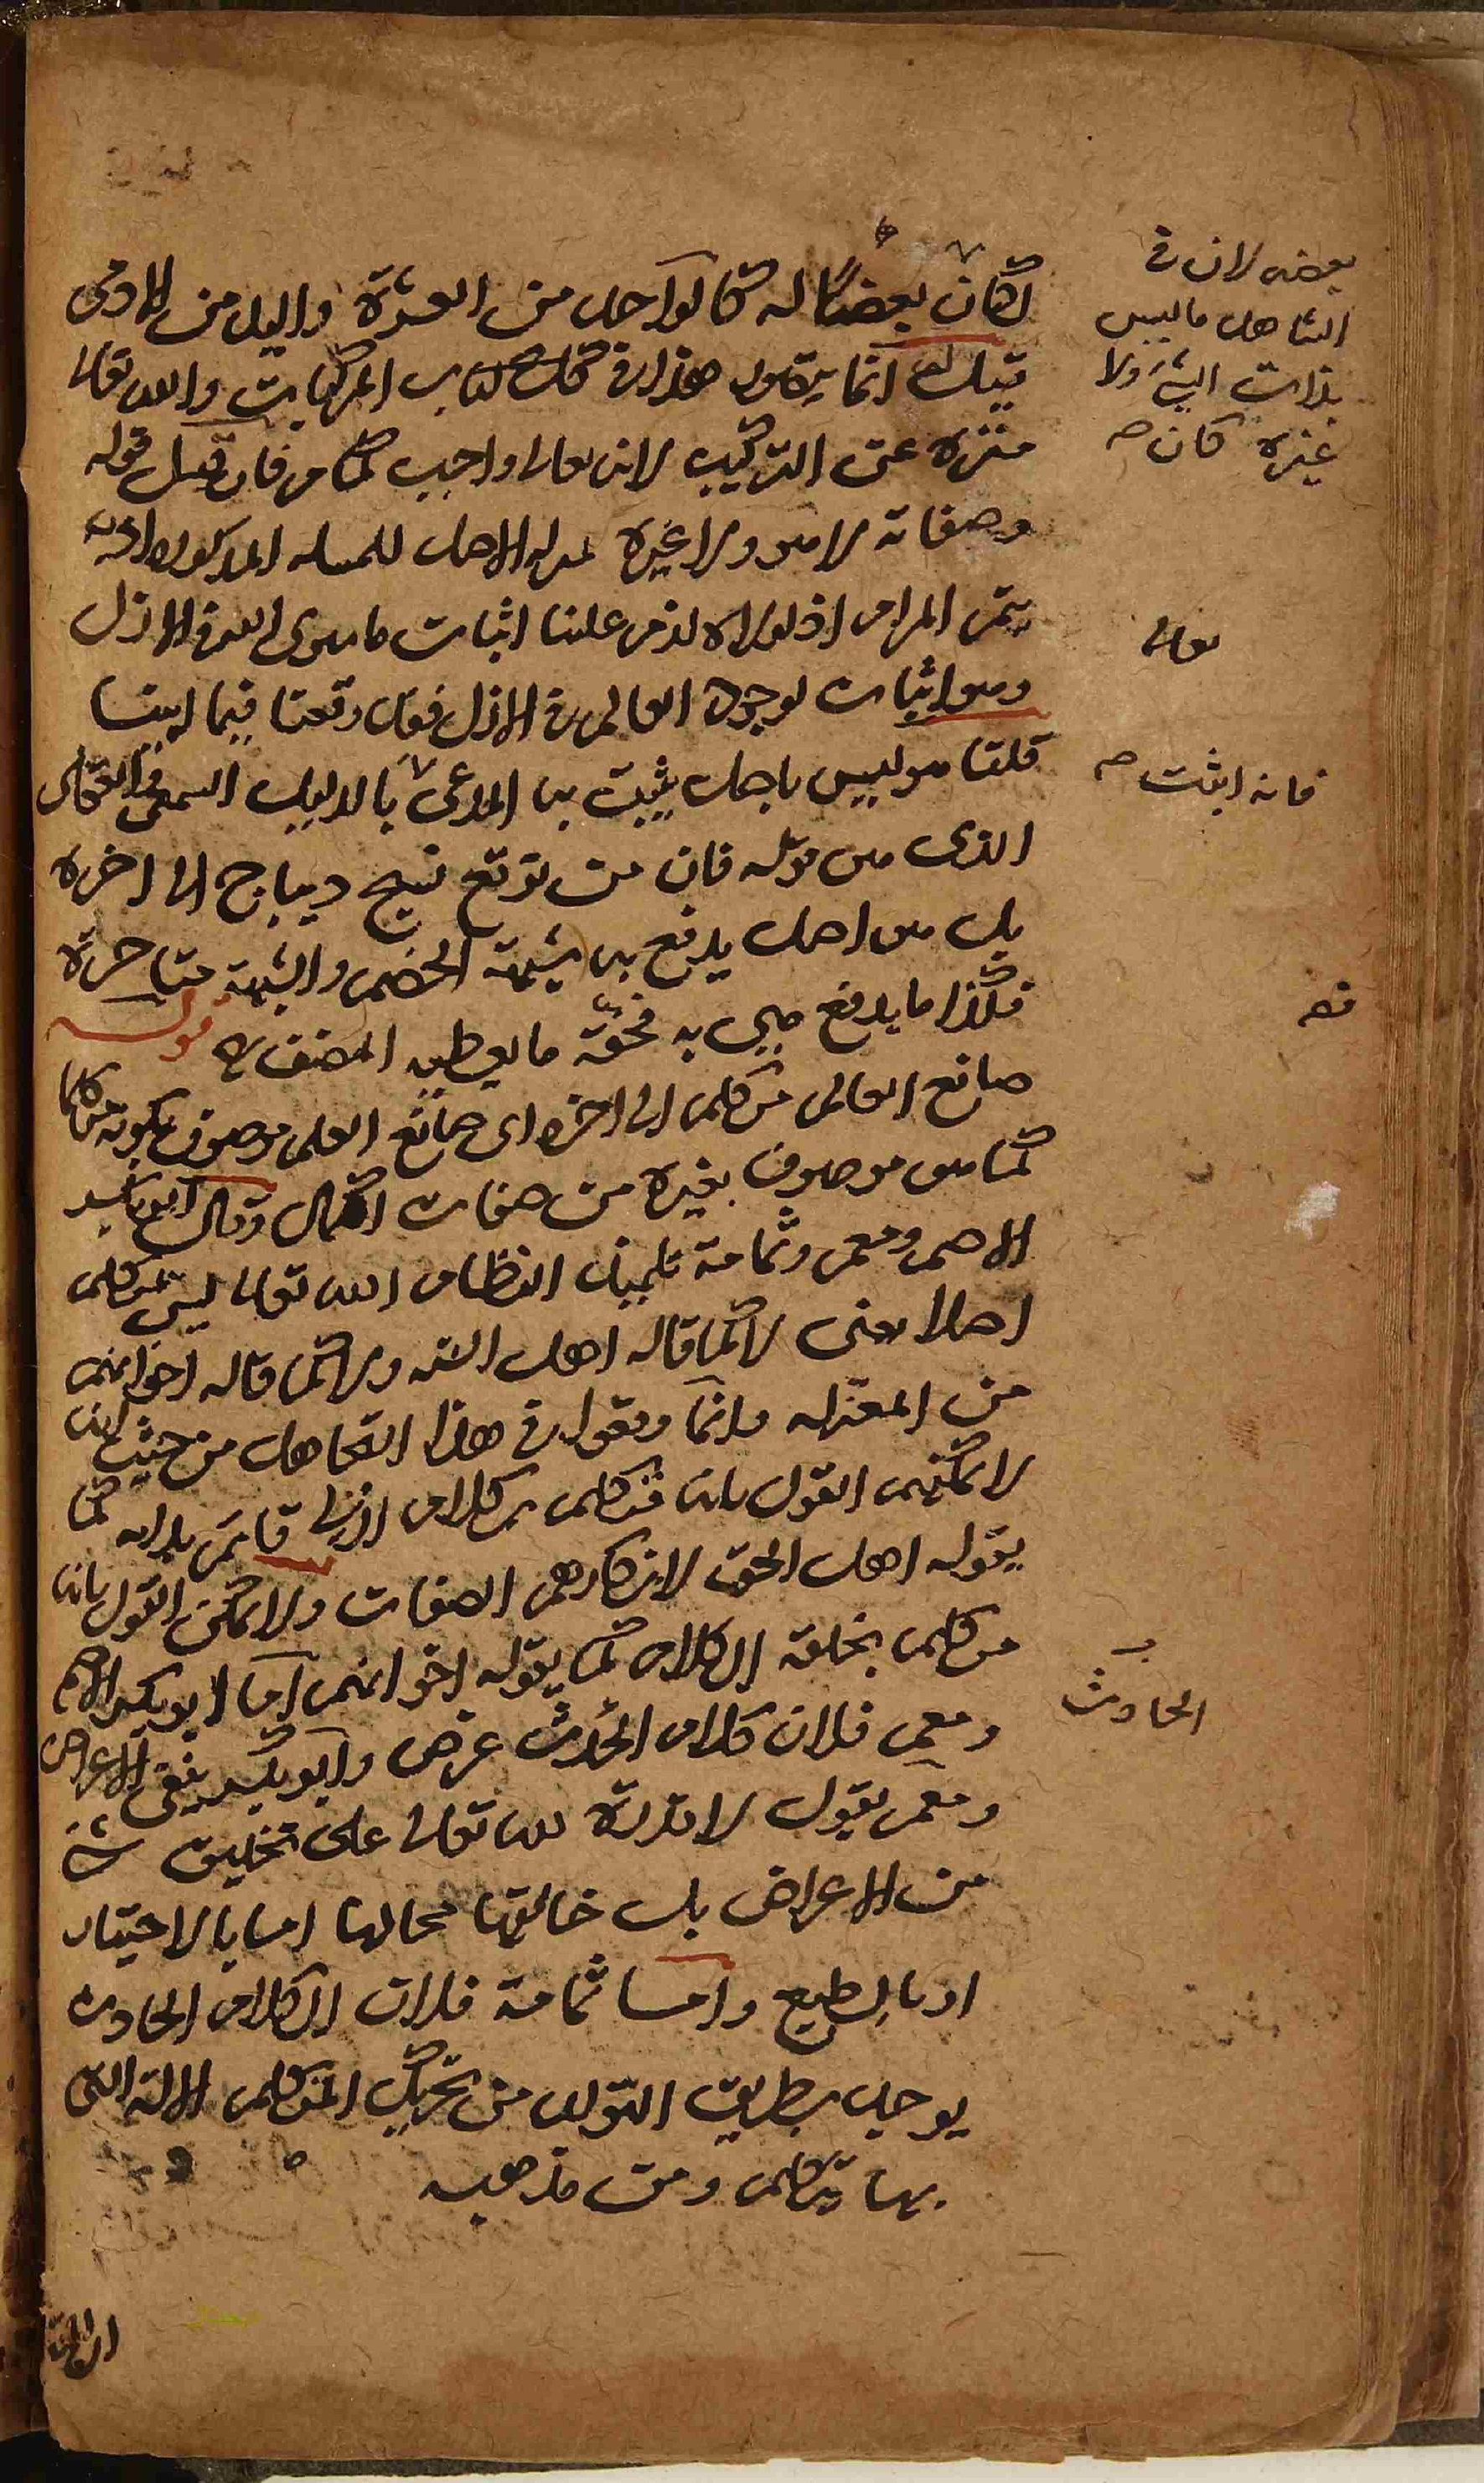 لكان بعضا له كالواحد من العشرة واليد من الادمى
قيل له انما يتصور هذا فى المركبات والله تعالى
منزه عن التركيب لانه تعالى واجب كما مر فان قيل قوله
وصفاته لا هو ولا غيره
يتم المرام اذ لولاه لزم علينا اثبات ما سوى الله فى الازل
وهو اثبات لوجود العالم فى الازل فوقعنا فيما ابينا
قلنا هو ليس باصل يثبت به المدعى بالدليل السمعى
الذى من قوله فان من توقع نسج ديباج الى اخره
بل هو اصل يدفع به شبهة الخصم والشبهة متاخرة
فكذا ما يدفع هى به المصنف قوله
صانع العالم متكلم الى اخره اى صانع العلم موصوف بكونه متكلما
كما هو موصوف بغيره من صفات الكمال وقال ابو بكر
الاصم ومعمر وثمامة تلميذ النظام الله تعالى ليس بمتكلم
اصلا يعنى لا كما قاله اهل السنه ولا كما قاله اخوانهم
من المعتزله وانما وقعوا فى هذا التجاهل من حيث انه
لا يمكنهم القول بانه متكلم بكلام ازلى قائم بذاته كما
يقوله اهل الحق لانكارهم الصفات ولا يمكن القول بانه
متكلم بخلقه الكلام كما يقوله اخوانهم اما لابو بكر الاصم
ومعمر فلان كلام المحدث عرض وابو بكر ينفى الاعراض
ومعمر يقول لا قدرة لله تعالى على تخليق شئ
من الاعراض بل خالقها محالها اما بالاختيار
او بالطبع واما ثمامة فلان الكلام الحادث
يوجد بطريق التولد من تحريك المتكلم الالة التى
بها يتكلم ومن مذهبه
بعضه لان فى
الشاهد ما ليس
بذات الشئ ولا
غيره كان صح
تعالى
فانه اثبت صح
الحادث